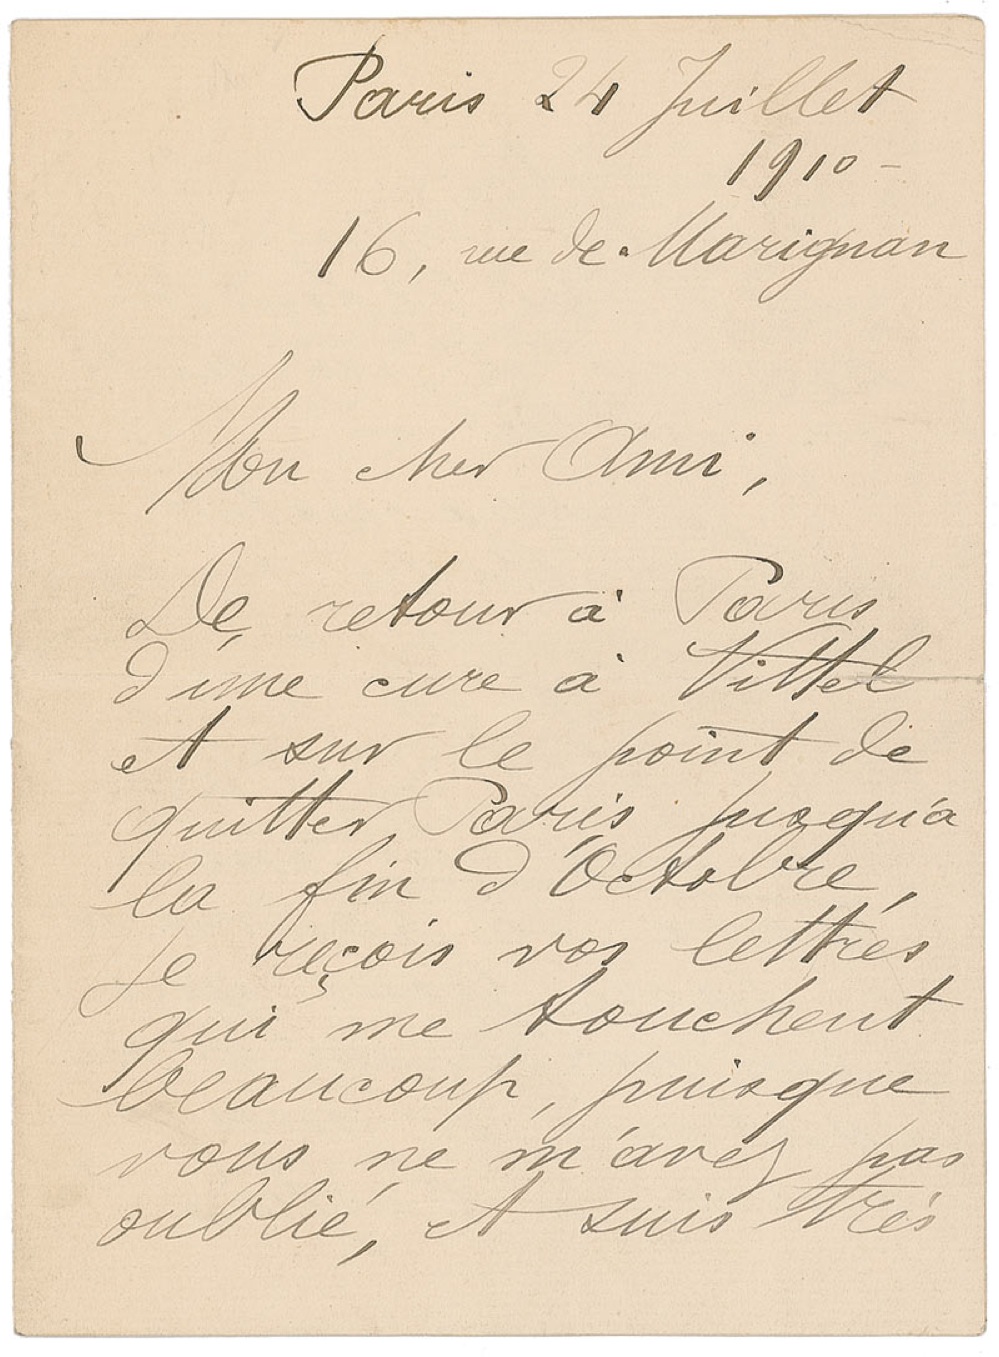 Paris 24 Juillet
1910 -
16, rue de Marignan
Mon cher Ami,
De retour à Paris
d'une cure à Vittel
et sur le point de
quitter Paris jusqu'à
la fin d'Octobre,
je reçois vos lettres
qui me touchent
beaucoup, puisque
vous ne m'avez pas
oublié, et suis très